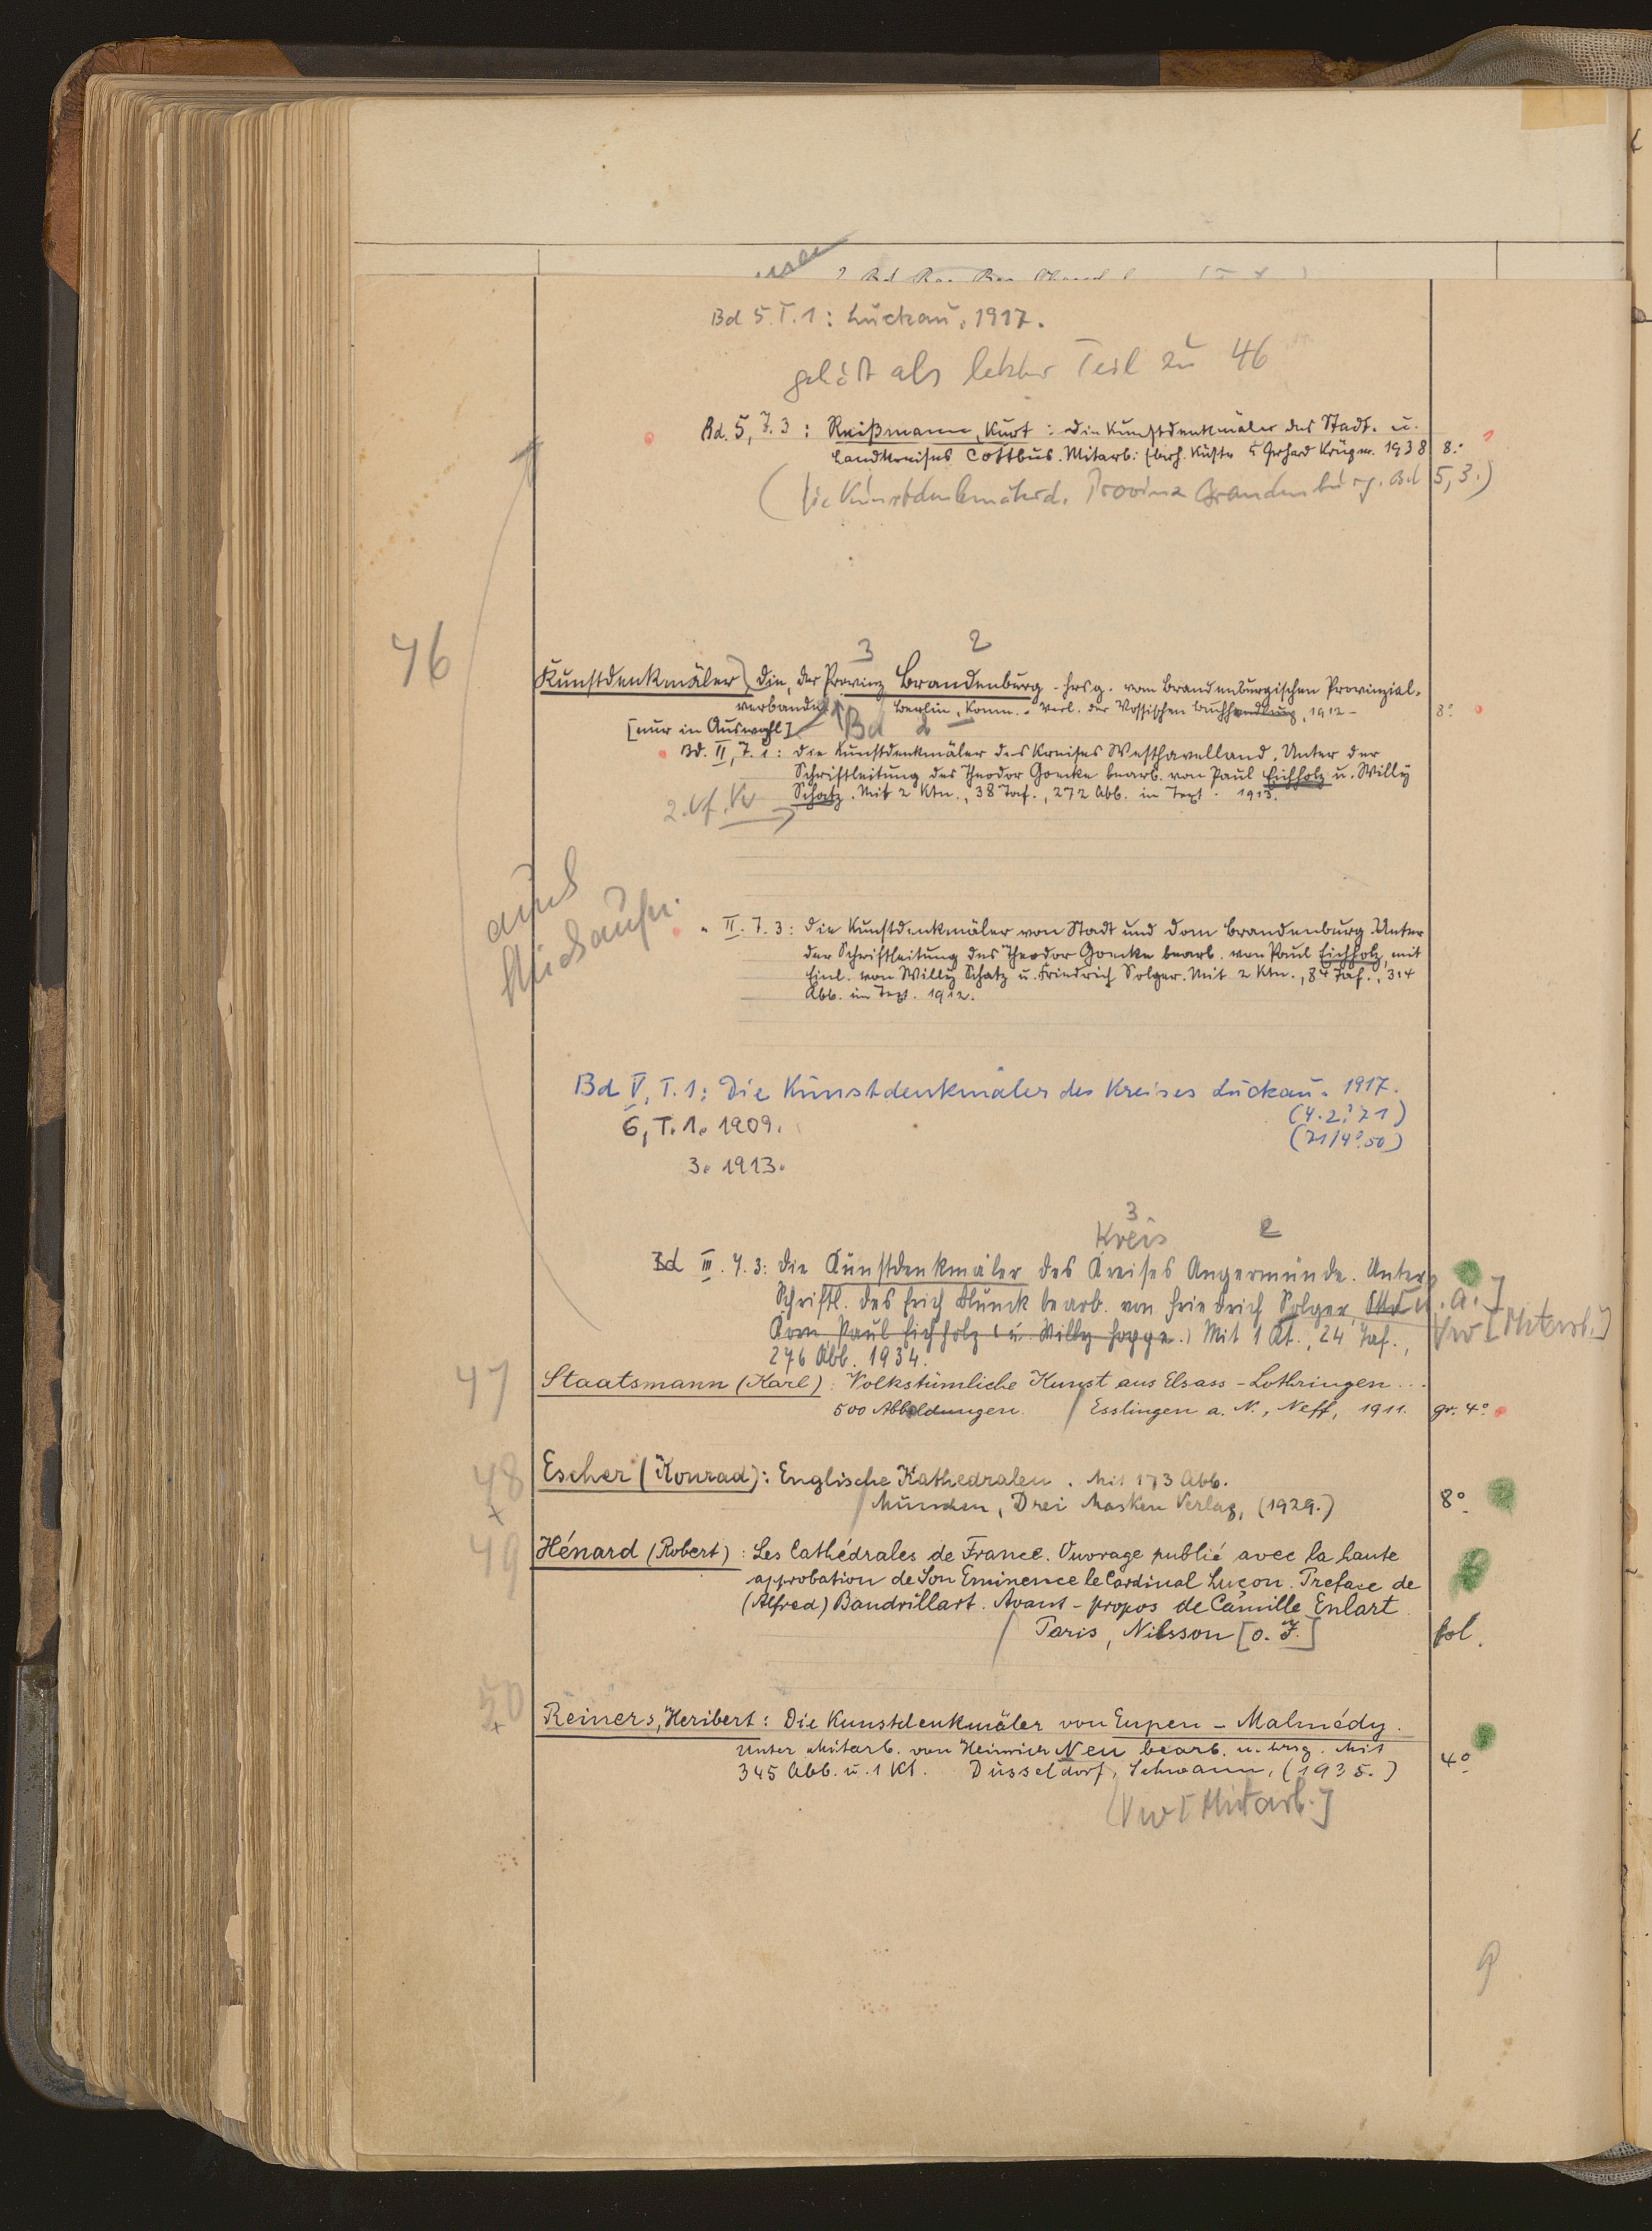 Bd 5. T. 1: Luckau, 1917.
gehört als letzter Teil zu 46
Bd. 5, T. 3: Reißmann, Kurt: Die Kunstdenkmäler des Stadt- u.
Landkreises Cottbus. Mitarb: Gerhard Krüger. 1938 8°
(Die Kunstdenkmäler d. Provinz Brandenburg. Bd 5,3.)
46
3 2
Kunstdenkmäler, die, der Provinz Brandenburg. Hrsg. vom Brandenburgischen Provinzial-
verbande. Berlin, Komm.-Verl. der Vossischen Buchhandlung, 1912- 8°
[nur in Auswahl] Bd 2
Bd. II, T. 1: Die Kunstdenkmäler des Kreises Westhavelland. Unter der
Schriftleitung des Theodor Goecke bearb. von Paul Eichholz u. Willy
Schatz. Mit 2 Ktn., 38 Taf., 272 Abb. im Text. 1913.
2. Vf. Vw
auch
" II. T. 3: Die Kunstdenkmäler von Stadt und Dom Brandenburg. Unter
der Schriftleitung des Theodor Goecke bearb. von Paul Eichholz, mit
Einl. von Willy Schatz u. Friedrich Solger. Mit 2 Ktn., 84 Taf., 314
Abb. im Text. 1912.
Bd V, T. 1: Die Kunstdenkmäler des Kreises Luckau. 1917.
(4.2° 71)
6, T. 1. 1909.
(71/4° 50)
3. 1913.
3 2
Kreis
Bd III. T. 3: Die Kunstdenkmäler des Kreises Angermünde. Unter
Schriftl. des Erich Blunck bearb. von Friedrich Solger, Otto u. a.]
Korn, Paul Eichholz (u. Willy Hoppe.) Mit 1 Kt., 24 Taf., Vw [Mitarb.]
276 Abb. 1934.
47 Staatsmann (Karl): Volkstümliche Kunst aus Elsass-Lothringen...
500 Abbildungen. Esslingen a. N., Neff, 1911. gr. 4°
48 Escher (Konrad): Englische Kathedralen. Mit 173 Abb.
München, Drei Masken Verlag, (1929.) 8°
49 Hénard (Robert): Les Cathédrales de France. Ouvrage publié avec la haute
approbation de Son Eminence le Cardinal Luçon. Preface de
(Alfred) Baudrillart. Avant-propos de Camille Enlart
Paris, Nilsson [o. J.] fol.
50 Reiners, Heribert: Die Kunstdenkmäler von Eupen-Malmédy.
Unter Mitarb. von Heinrich Neu bearb. u. hrsg. Mit
345 Abb. u. 1 Kt. Düsseldorf, Schwann, (1935.) 4°
(Vw [Mitarb.]